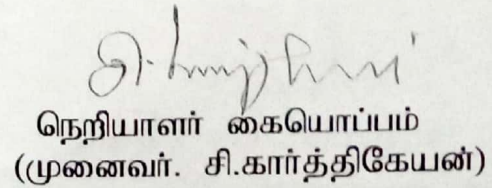 நெறியாளர் கையொப்பம்
(முனைவர். சி.கார்த்திகேயன்)